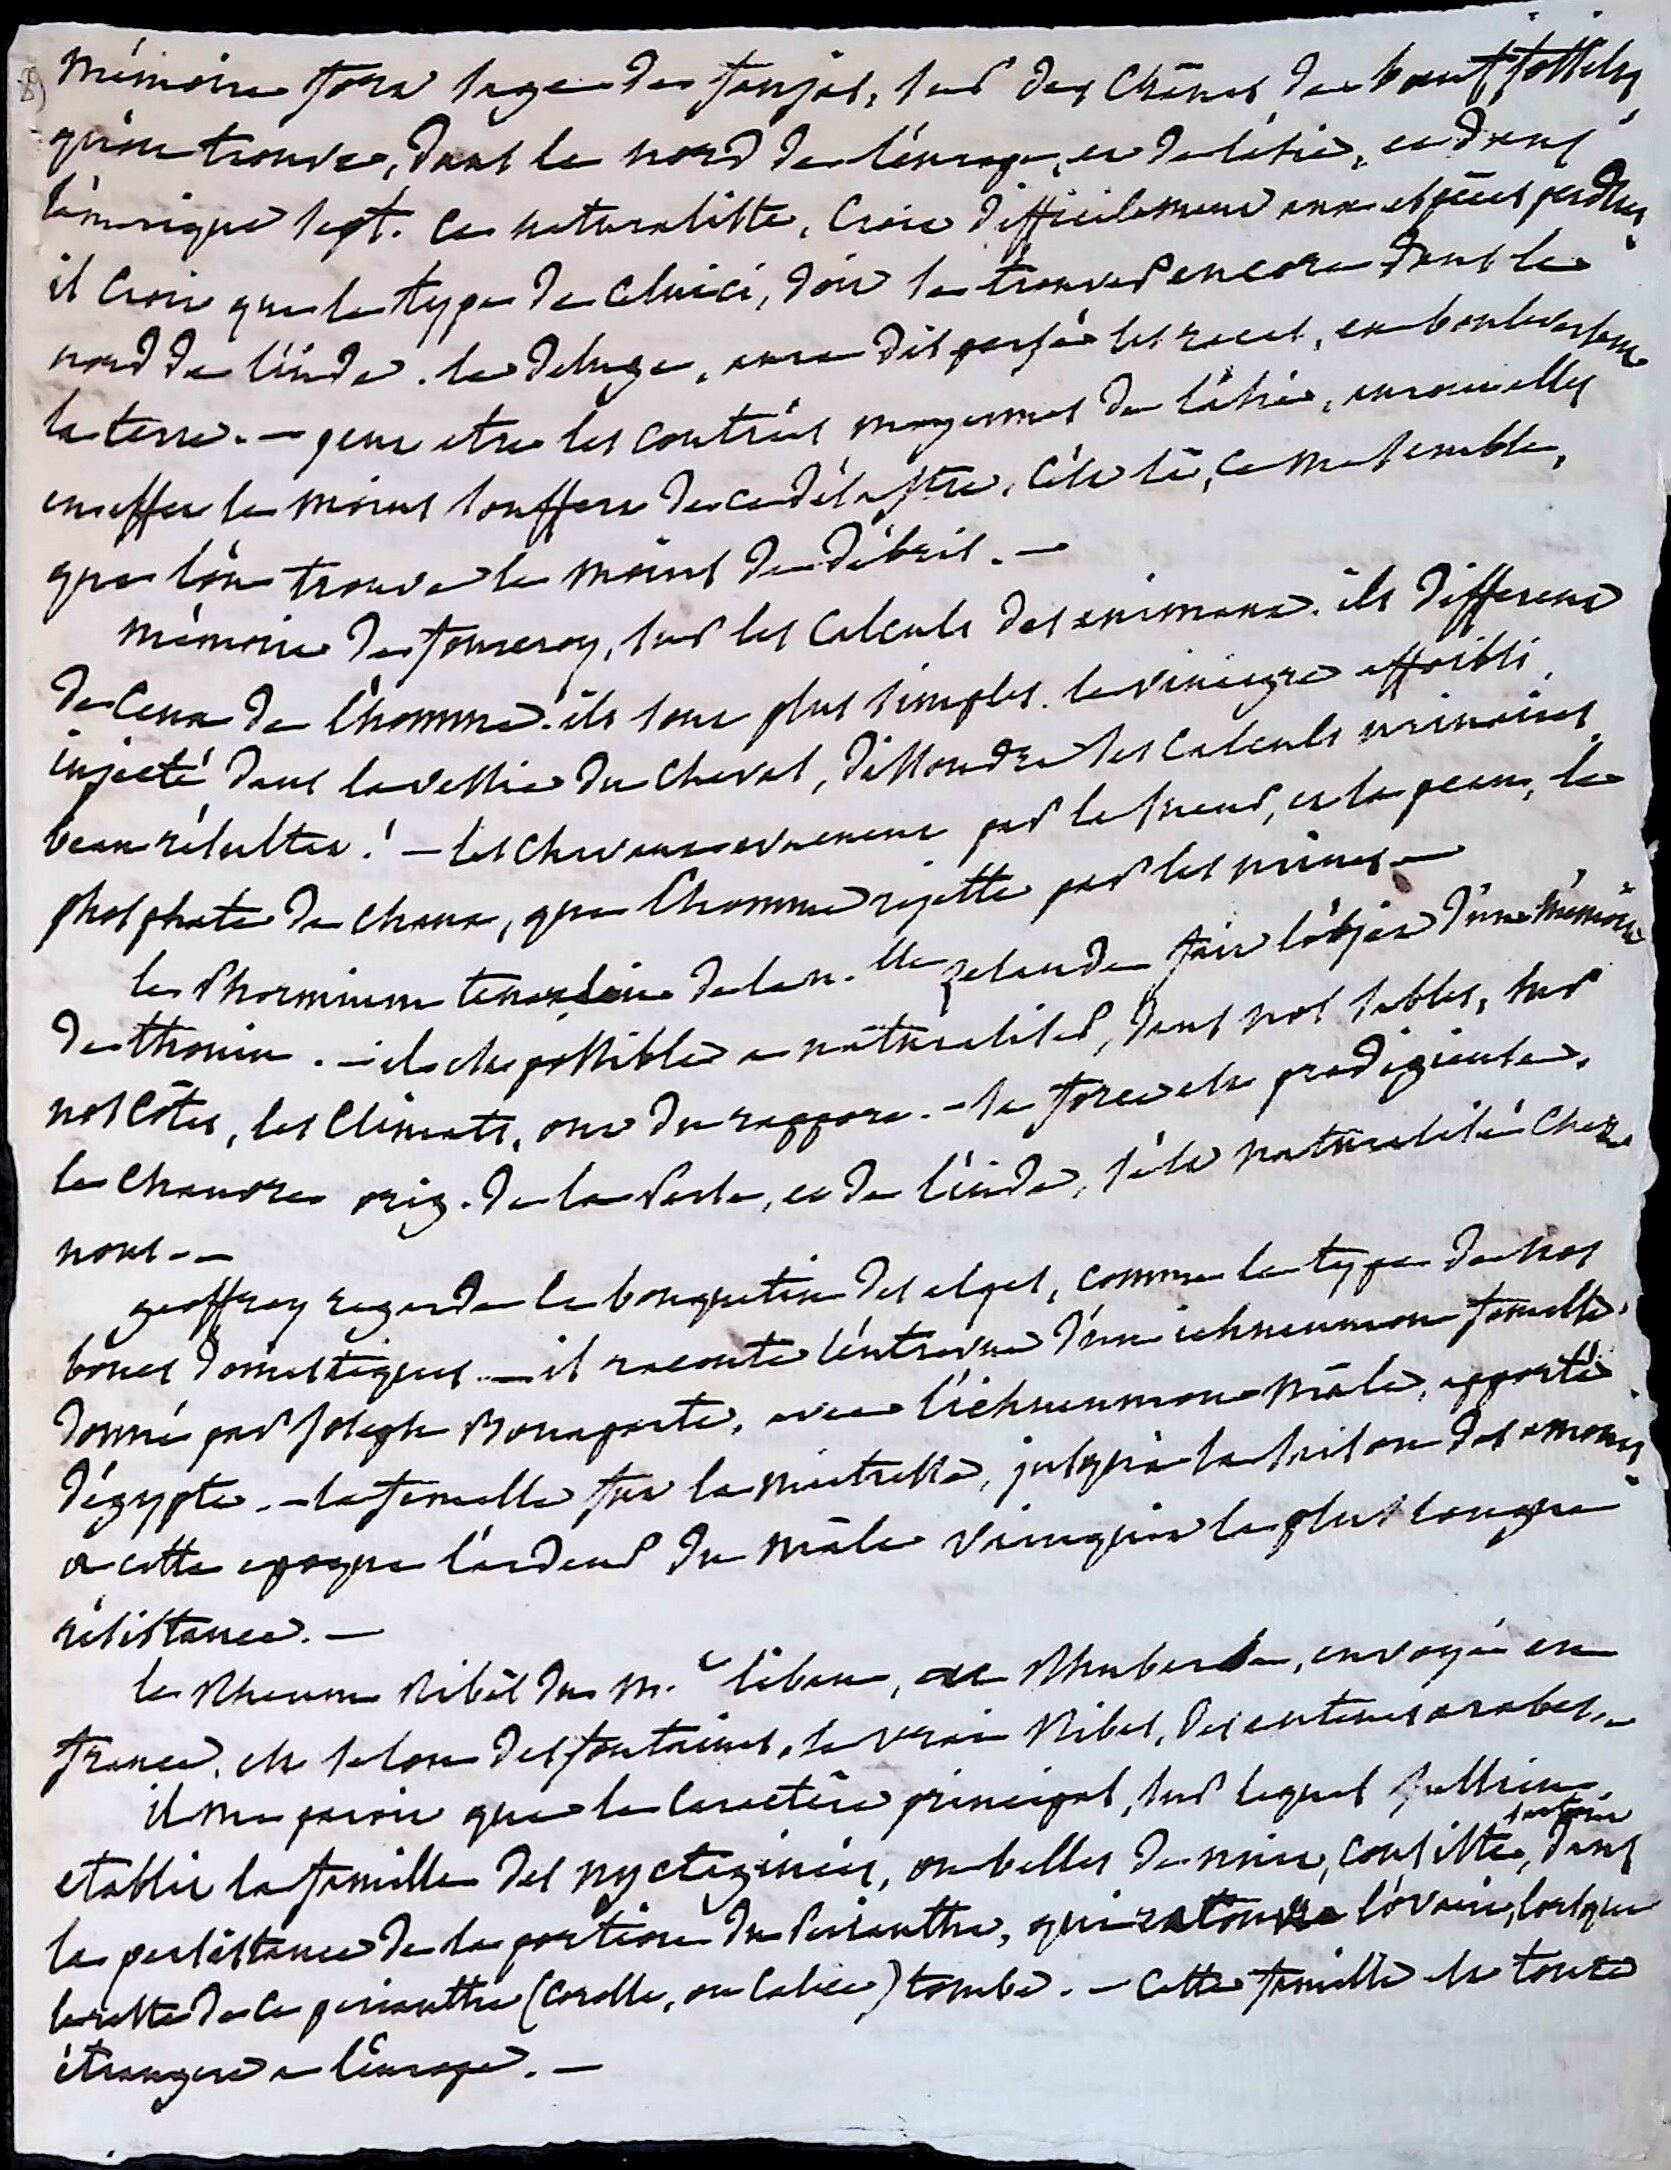 8)
mémoire fort sage de faujas, sur des crânes de boeuf fossiles
qu'on trouve, dans le nord de l'europe, et de l'asie, et dans
l'amérique sept. ce naturaliste, croit difficilement aux espèces perdues,
il croit que le type de celui ci, doit se trouver encore dans le
nord de l'inde. le deluge, aura dispersé les races, en bouleversant
la terre. — peut etre les contrées moyennes de l'asie, auront elles
en effet le moins souffert de ce désastre, c'est là, ce me semble,
que l'on trouve le moins de débris. —
mémoire de fourcroy, sur les calculs des animaux. ils different
de ceux de l'homme. ils sont plus simples. le vinaigre affoibli,
injecté dans la vessie du cheval, dissoudra les calculs urinaires.
beau résultat! — les chevaux evacuent par la sueur, et la peau, le
phosphate de chaux, que l'homme rejette par les urines —
le Phormium tenax, lin de la n.lle zelande fait l'objet d'un mémoire
de thouin. — il est possible a naturaliser, dans nos sables, sur
nos côtes, les climats, ont du rapport. — sa force est prodigieuse.
le chanvre orig. de la Perse, et de l'inde, s'est naturalisé chez
nous. —
geoffroy regarde le bouquetin des alpes, comme le type de nos
boucs domestiques. — il raconte l'entrevue d'un ichneumon femelle,
donné par Joseph Bonaparte, avec l'ichneumon mâle, apporté
d'égypte. — la femelle fut la maitresse, jusqu'à la saison des amours
a cette epoque l'ardeur du mâle vainquit la plus longue
résistance. —
le Rheum Ribès du M.t liban, ou Rhubarbe, envoyée en
france, est selon des fontaines, le vrai Ribes, des auteurs arabes. —
il me paroit que le caractère principal, sur lequel Jussieu,
etablit la famille des nyctaginées, ou belles de nuit, consiste, surtout dans
la persistance de la portion du Perianthe, qui entoure l'ovaire, lorsque
le reste de ce perianthe (corolle, ou calice) tombe. — cette famille est toute
étrangere a l'europe. —